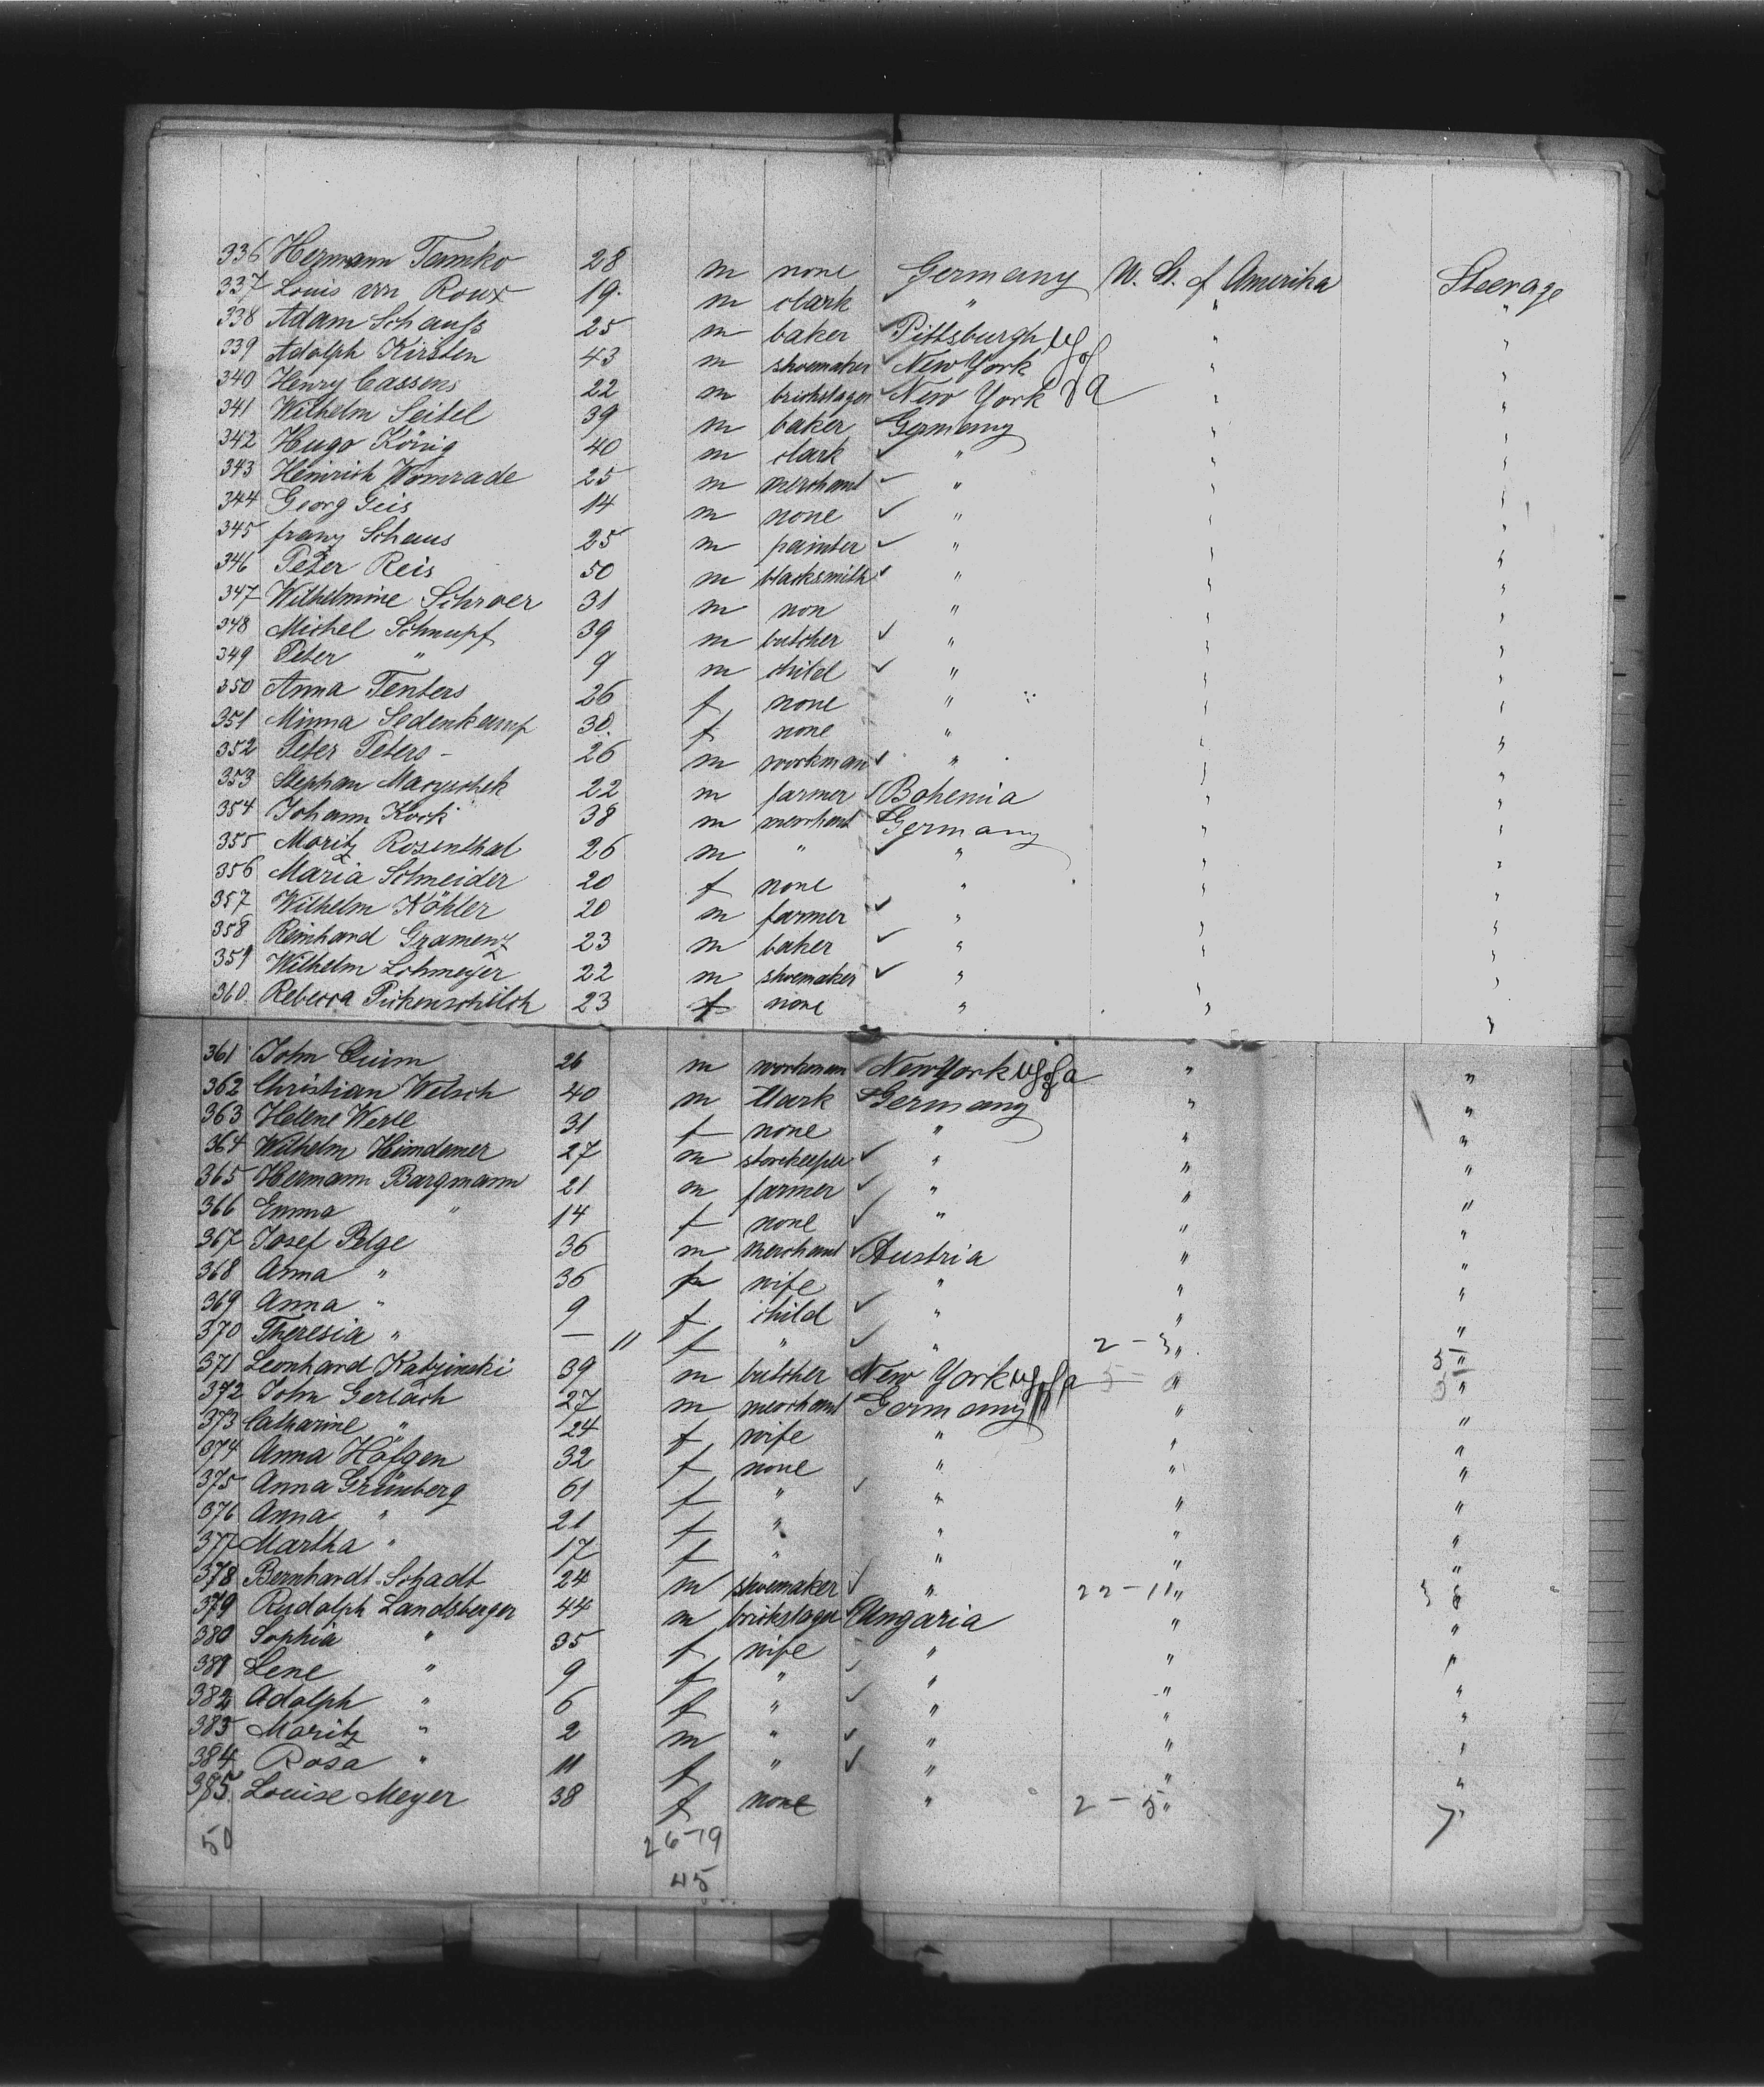 336 Hermann Tamko 28 m none Germany U. St. of Amerika Steerage
337 Louis von Roux 19. m clark ✓ " " "
338 Adam Schauss 25 m baker ✓ Pittsburgh " "
339 Adolph Kirsten 43 m shoemaker ✓ New York " "
340 Henry Cassens 22 m brickslager ✓ New York " "
341 Wilhelm Seitel 39 m baker Germany " "
342 Hugo König 40 m clark ✓ " " "
343 Heinrich Womrade 25 m merchant ✓ " " "
344 Georg Geis 14 m none ✓ " " "
345 franz Schaus 25 m painter ✓ " " "
346 Peter Reis 50 m blacksmith ✓ " " "
347 Wilhelmine Schroer 31 m non " " "
348 Michel Schnupf 39 m butcher ✓ " " "
349 Peter " 9 m child ✓ " " "
350 Anna Tenters 26 f none " " "
351 Minna Sedenkamp 30. f none " " "
352 Peter Peters - 26 m workman ✓ " " "
353 Stephan Maryschek 22 m farmer ✓ Bohemia " "
354 Johann Kock 38 m merchant ✓ Germany " "
355 Moritz Rosenthal 26 m " ✓ " " "
356 Maria Schneider 20 f none " " "
357 Wilhelm Köhler 20 m farmer ✓ " " "
358 Reinhard Gramenz 23 m baker ✓ " " "
359 Wilhelm Lohmeyer 22 m shoemaker ✓ " " "
360 Rebecca 23 f none " " "
361 John Quim 26 m workman ✓ New York " "
362 Christian Welsch 40 m Clark ✓ Germany " "
363 Helene Werle 31 f none " " "
364 Wilhelm Himdemer 27 m storekeeper ✓ " " "
365 Hermann Bargmann 21 m farmer ✓ " " "
366 Emma " 14 f none ✓ " " "
367 Josef Pelge 36 m merchant ✓ Austria " "
368 Anna " 36 f wife " " "
369 Anna " 9 f child ✓ " " "
370 Theresia " — 11 f " ✓ " 2 - 3 " 5 "
371 Leonhard Katzinski 39 m butcher ✓ New York " "
372 John Gerlach 27 m merchant ✓ Germany " "
373 Catharine " 24 f wife " " "
374 Anna Höfgen 32 f none " " "
375 Anna Grünberg 61 f " ✓ " " "
376 Anna " 21 f " " " "
377 Martha " 17 f " " " "
378 Bernhardt Schadt 24 m shoemaker ✓ " 22 - 11 "
379 Rudolph Landsberger 44 m brickslager ✓ Ungaria " "
380 Sophia " 35 f wife " " "
381 Lene " 9 f " ✓ " " "
382 Adolph " 6 f " ✓ " " "
383 Moritz " 2 m " ✓ " " "
384 Rosa " 11 f " ✓ " " "
385. Louise Meyer 38 f none " 2 - 5 " 7 "
50 26-19
45